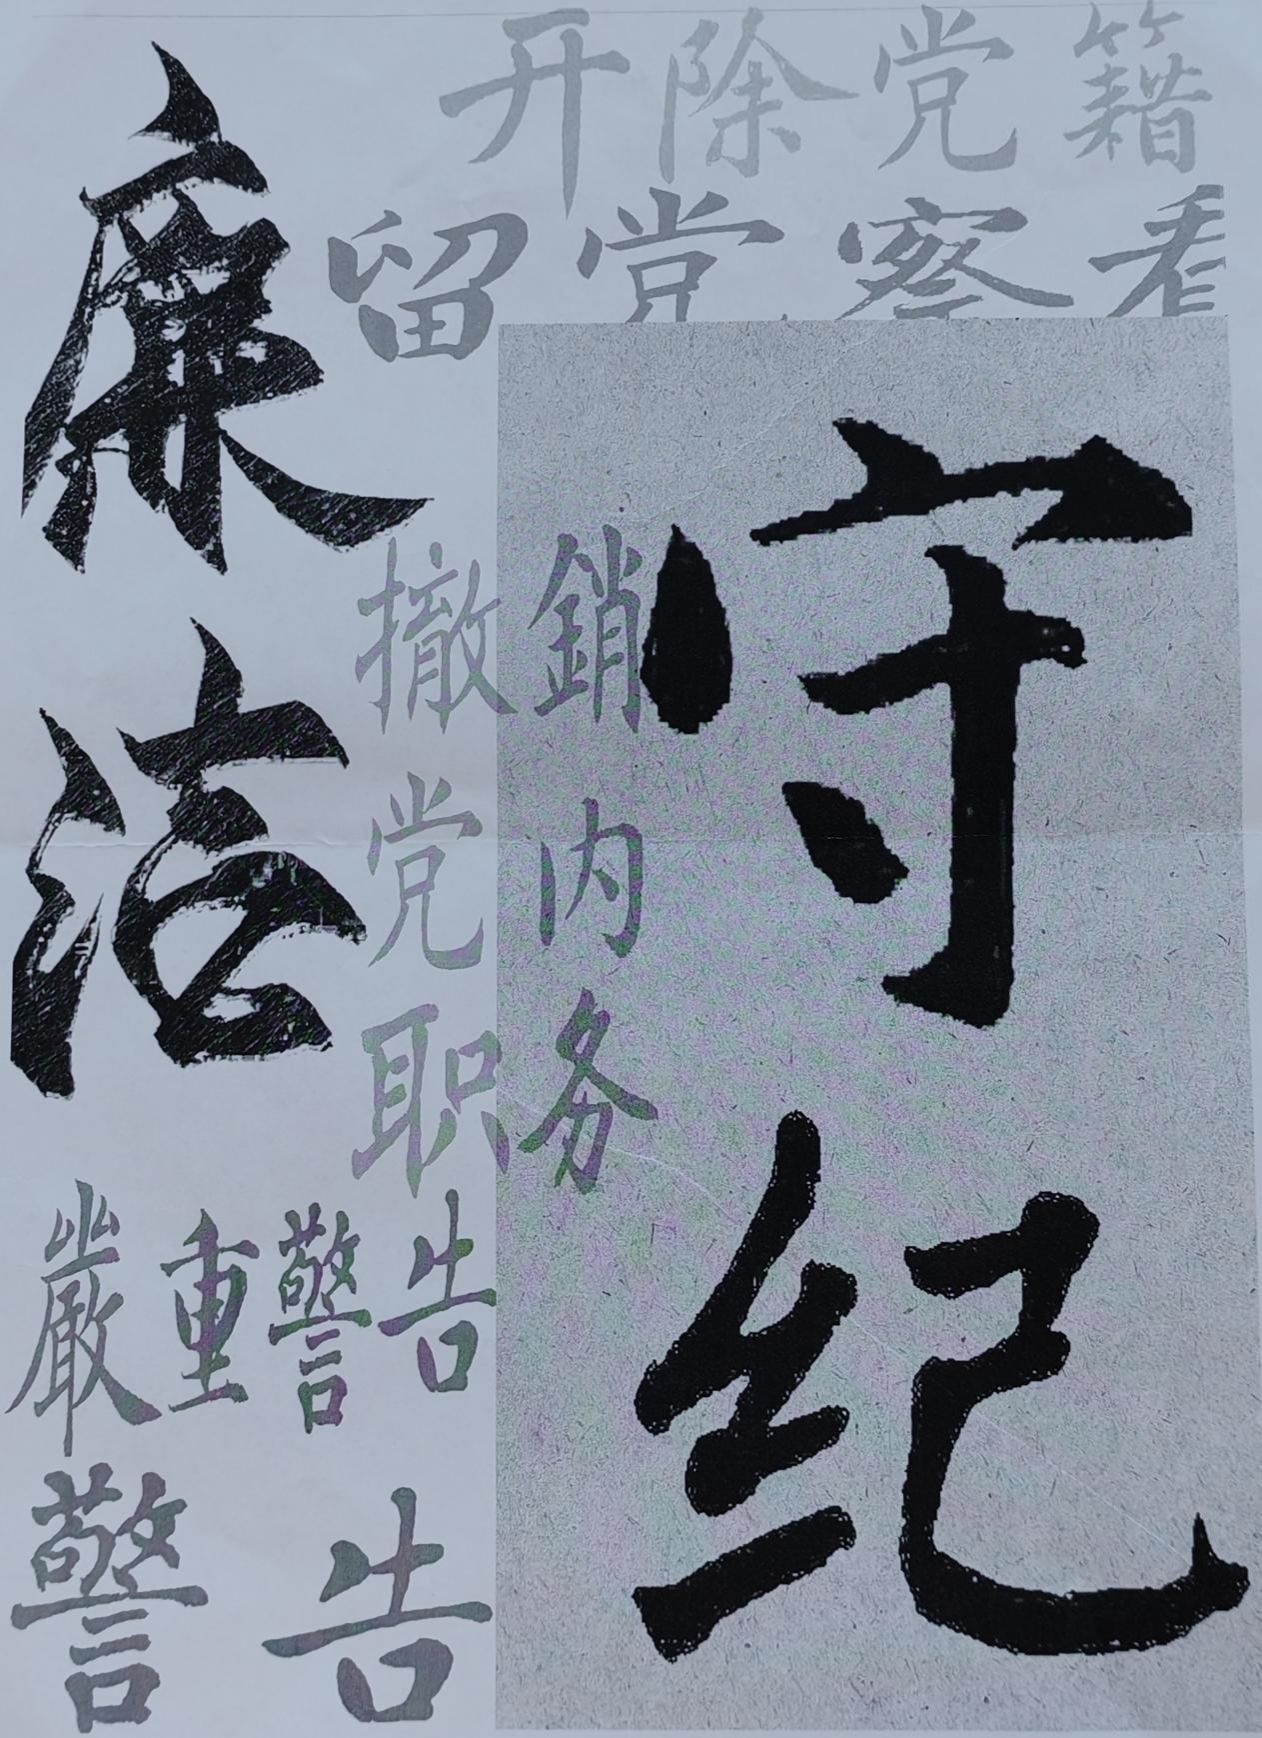 开除党籍
留党察看
廉洁
守纪
撤銷
党内
职务
嚴重警告
警告